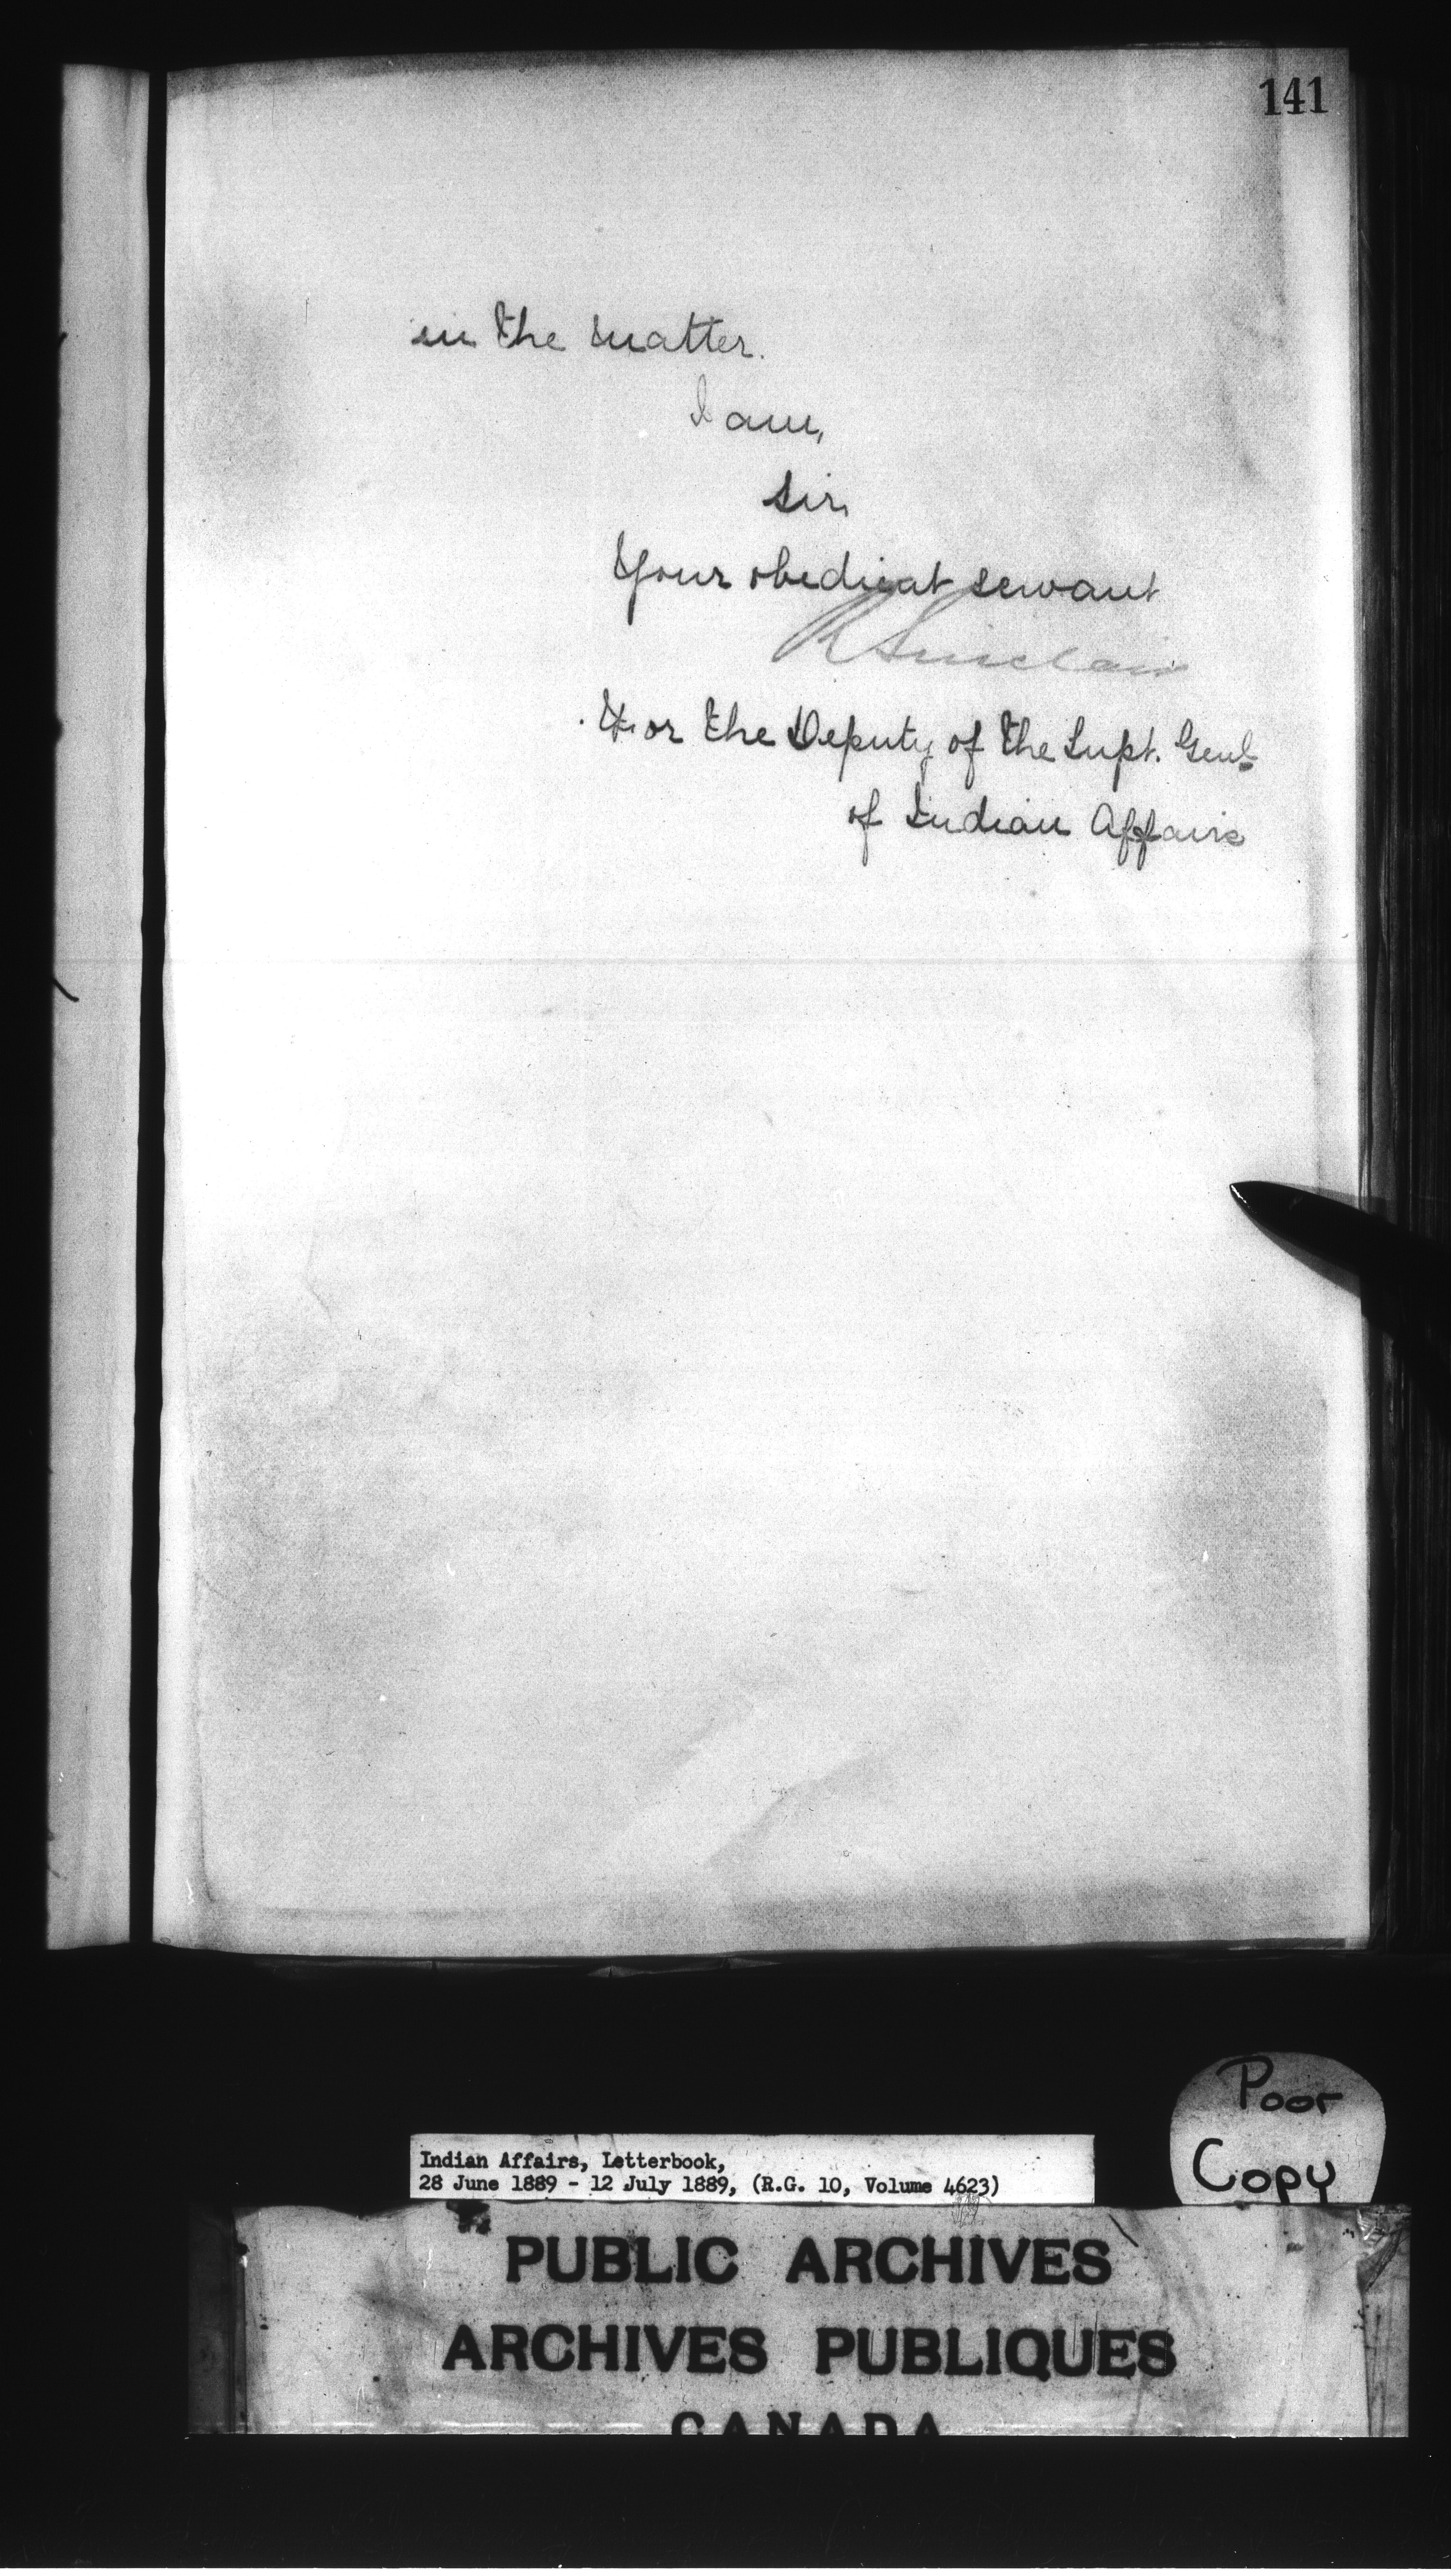 141
in the matter.
I am,
Sir,
Your obedient servant
R Sinclair
For the Deputy of the Supt. Genl
of Indian Affairs
Poor
Copy
Indian Affairs, Letterbook,
28 June 1889 - 12 July 1889, (R.G. 10, Volume 4623)
PUBLIC ARCHIVES
ARCHIVES PUBLIQUES
CANADA